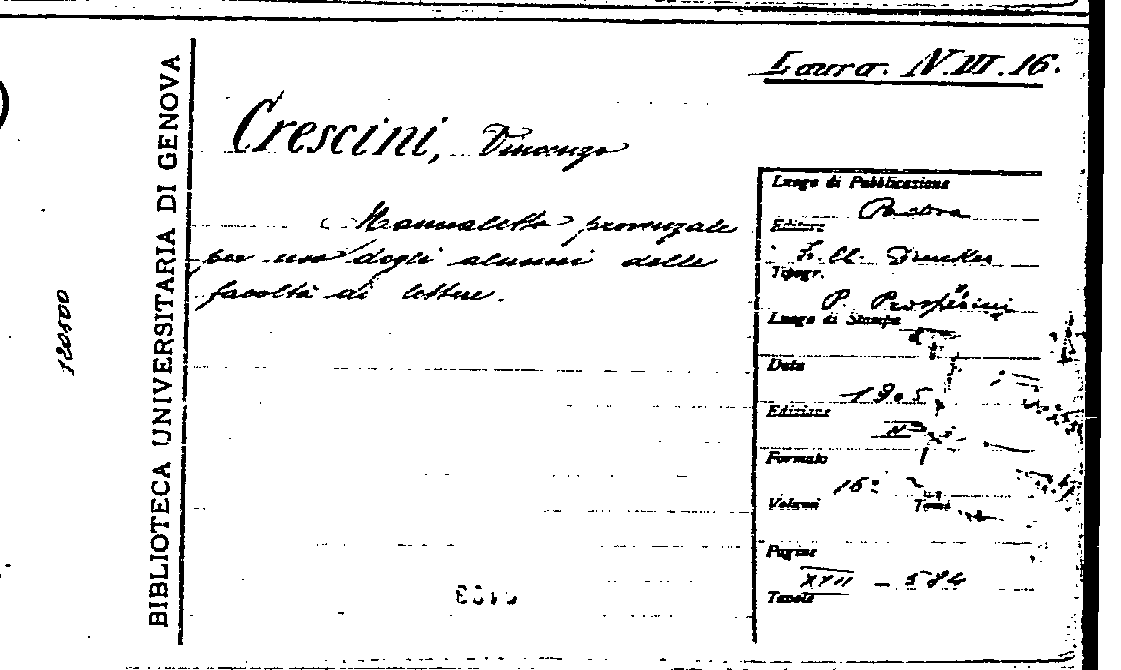 Laura. N.VII.16.
BIBLIOTECA UNIVERSITARIA DI GENOVA
Crescini, Vincenzo
Manualetto provenzale
per uso degli alunni delle
facoltà di lettere.
120500
Luogo di Pubblicazione
Padova
Editore
Drucker
Tipogr.
P. Prosperini
Luogo di Stampa
Data
1905
Edizione
Formato
16º
Volumi Tomi
Pagine
XVII - 584
Tavole